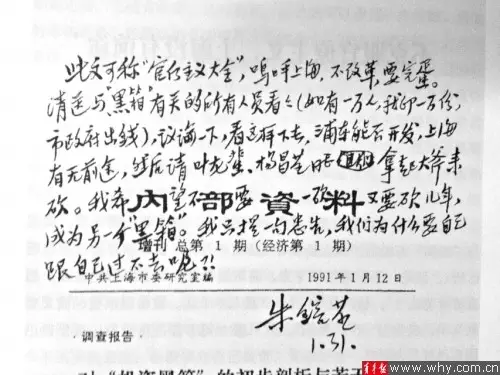 此文可称"官僚主义大全",呜呼上海,不改革,要完蛋。
请送与"黑箱"有关的所有人员看看(如有一万人,我印一万份,
市政府出钱),议论一下,看这样下去,浦东能否开发,上海
有无前途,然后请叶龙蜚、杨昌基同志拿起大斧来
砍。我希望不要一砍又要砍几年,
内部資料
成为另一个"黑箱"。我只提一句忠告,我们为什么要自己
增刊 总第 1 期(经济第 1 期)
跟自己过不去呢?!
中共上海市委研究室编 1991年1月12日
朱镕基
1.31.
·调查报告·
对"投资黑箱"的初步剖析与若干
青年报 www.why.com.cn